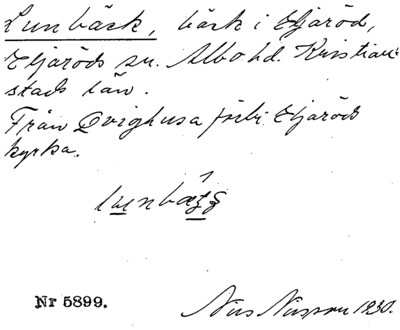 Lunbäck, bäck i Eljaröd,
Eljaröds sn. Albo hd. Kristian-
stads län.
Från Qvighusa förbi Eljaröds
kyrka.
Nr 5899.
Nils Nilsson 1930.